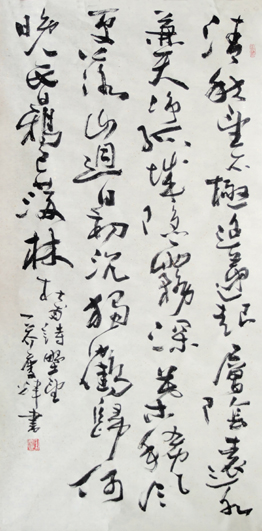 清秋望不極迢遞起層陰遠水
兼天净孤城隱霧深葉稀風
更落山迥日初沉獨鶴歸何
晚昏鴉已滿林 杜甫詩野望
書